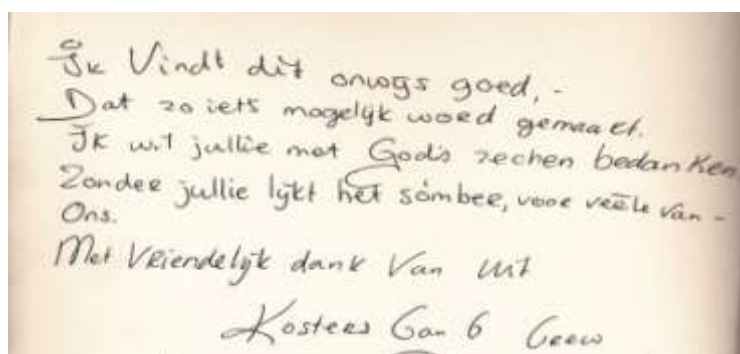 Ik Vindt dit onwijs goed, -
Dat zo iets mogelijk woed gemaakt.
Ik wil jullie met God's zechen bedanken
Zonder jullie lijkt het somber, voor veele van -
Ons.
Met Vriendelijk dank Van uit
Kosters 6